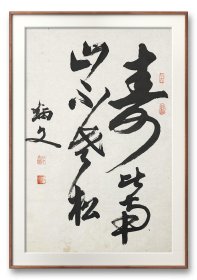 寿比南
山不老松
炳文